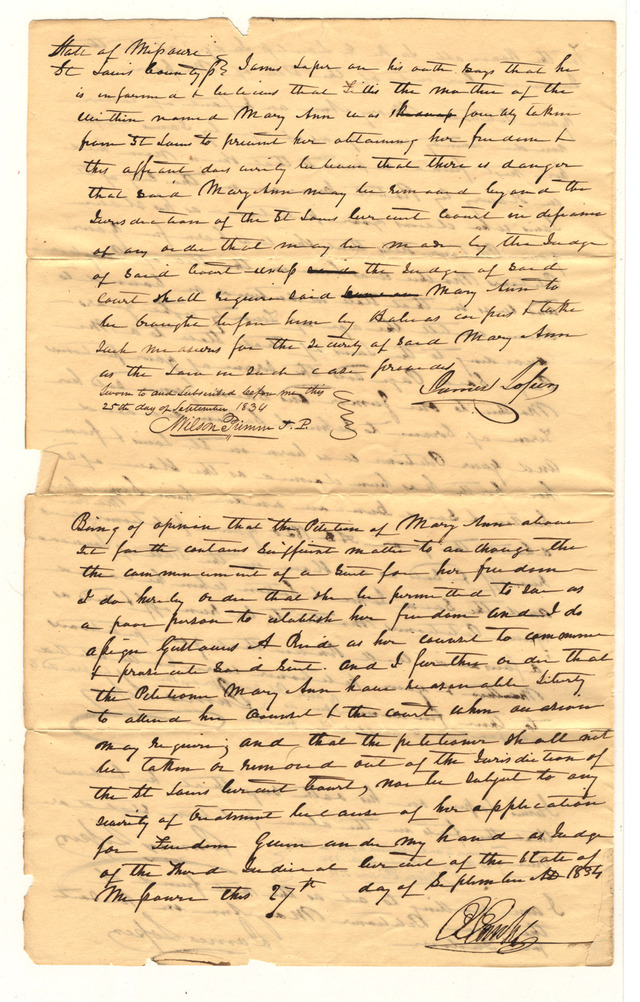 State of Missouri
St Louis County ss James Loper on his oath says that he
is informed & believes that Fillis the mother of the
within named Mary Ann was forcibly taken
from St Louis to prevent her obtaining her freedom &
this affiant does verily believe that there is danger
that said Mary Ann may be removed beyond the
Jurisdiction of the St Louis Circuit Court in defiance
of any order that may be made by the Judge
of said Court unless the Judge of said
Court shall require said Mary Ann to
be brought before him by Habeas corpus & take
such measures for the security of said Mary Ann
as the Law in such case provides
James Loper
Sworn to and Subscribed before me this
25th day of September 1834
Wilson Primm J. P.
Being of opinion that the Petition of Mary Ann above
set forth contains sufficient matter to authorize the
the commencement of a Suit for her freedom
I do hereby order that she be permitted to sue as
a poor person to establish her freedom and I do
assign Gustavus A Bird as her counsel to commence
& prosecute said Suit. And I further order that
the Petitioner Mary Ann have reasonable liberty
to attend her Counsel & the court when occasion
may require; and that the petitioner shall not
be taken or removed out of the Jurisdiction of
the St Louis Circuit Court, nor be subject to any
severity of treatment because of her application
for Freedom Given under my hand as Judge
of the Third Judicial Circuit of the State of
Missouri this 27th day of September AD 1834